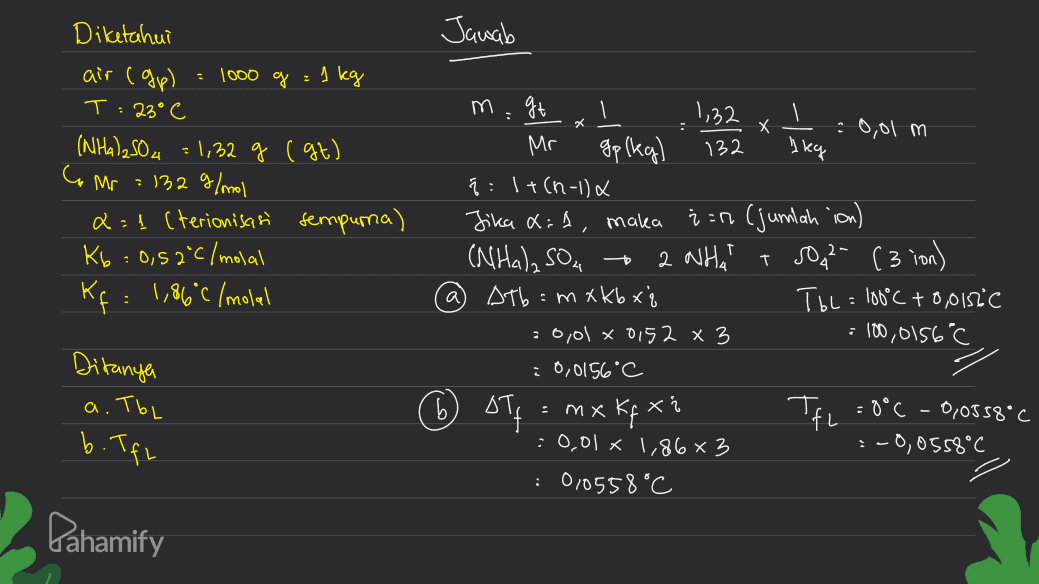 Diketahui
air (gp) = 1000 g = 1 kg
T = 23°C
(NH4)2SO4 = 1,32 g (gt)
↳ Mr = 132 g/mol
α = 1 (terionisasi sempurna)
Kb = 0,52°C/molal
Kf = 1,86°C/molal
Ditanya
a. TbL
b. TfL
Jawab
m = gt/Mr x 1/gp(kg) = 1,32/132 x 1/1kg = 0,01 m
i = 1+(n-1)α
Jika α=1, maka i=n (jumlah ion)
(NH4)2SO4 → 2 NH4⁺ + SO4²⁻ (3 ion)
(a) ΔTb = m x Kb x i
= 0,01 x 0,52 x 3
= 0,0156°C
TbL = 100°C + 0,0156°C
= 100,0156°C
(b) ΔTf = m x Kf x i
= 0,01 x 1,86 x 3
= 0,0558°C
TfL = 0°C - 0,0558°C
= -0,0558°C
Pahamify